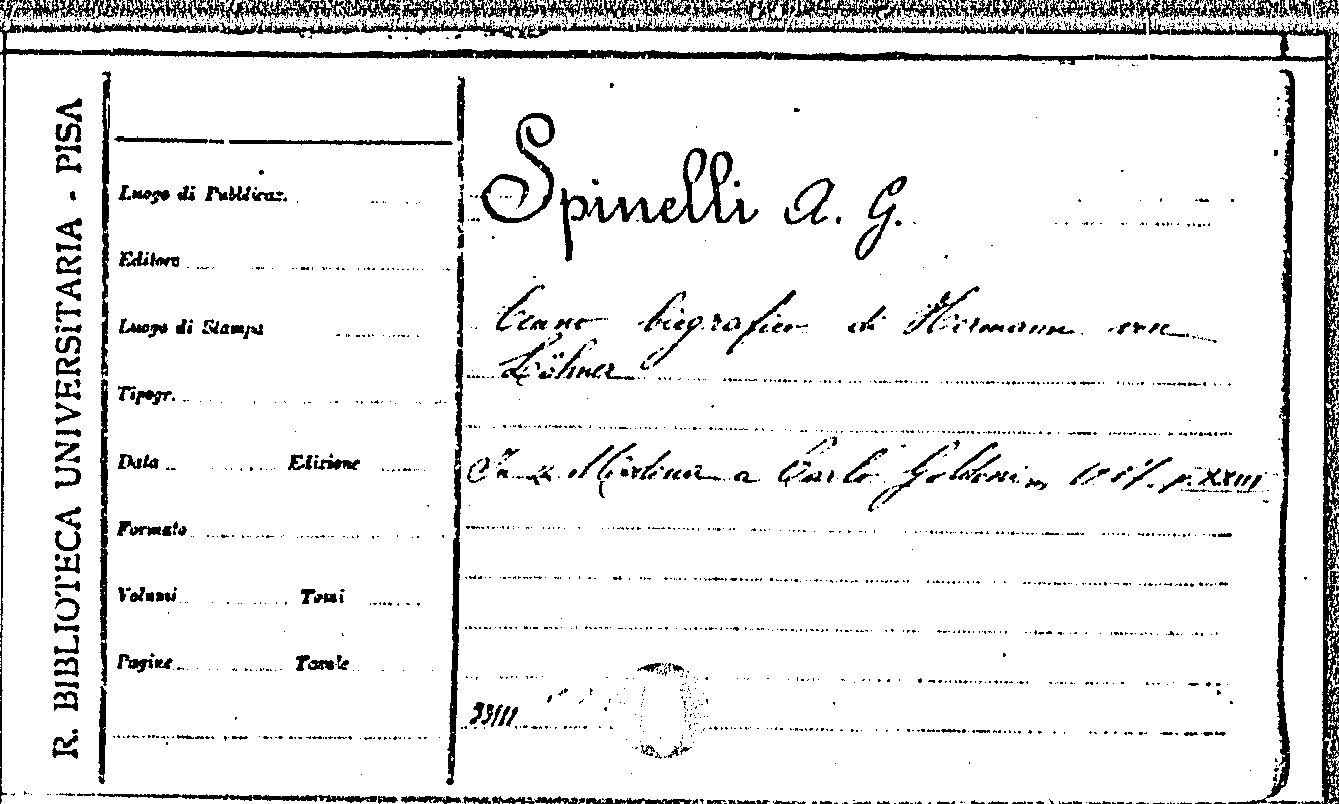 R. BIBLIOTECA UNIVERSITARIA - PISA
Luogo di Pubblicaz.
Editore
Luogo di Stampa
Tipogr.
Data Edizione
Formato
Volumi Tomi
Pagine Tavole
Spinelli A. G.
Cenno biografico di Hermann von
Löhner
In Modena a Carlo Goldoni p. XXIII